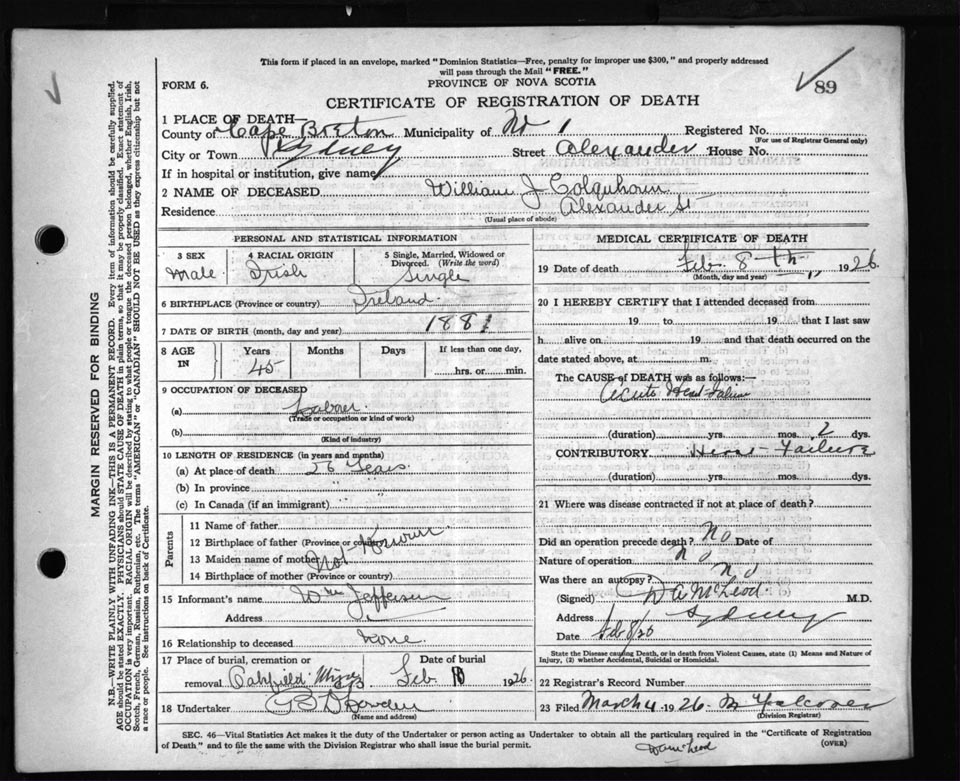 This form if placed in an envelope, marked "Dominion Statistics—Free, penalty for improper use $300," and properly addressed
will pass through the Mail "FREE."
89
FORM 6.
PROVINCE OF NOVA SCOTIA
CERTIFICATE OF REGISTRATION OF DEATH
1 PLACE OF DEATH—
County of Cape Breton Municipality of No 1 Registered No.
(For use of Registrar General only)
City or Town Sydney Street Alexander House No.
If in hospital or institution, give name
2 NAME OF DECEASED William J Colquhoun
Residence Alexander St
(Usual place of abode)
PERSONAL AND STATISTICAL INFORMATION
3 SEX Male
4 RACIAL ORIGIN Irish
5 Single, Married, Widowed or
Divorced. (Write the word)
Single
6 BIRTHPLACE (Province or country) Ireland.
7 DATE OF BIRTH (month, day and year) 1881
8 AGE IN
Years Months Days If less than one day,
45 hrs. or min.
9 OCCUPATION OF DECEASED
(a) Laborer
(Trade or occupation or kind of work)
(b)
(Kind of industry)
10 LENGTH OF RESIDENCE (in years and months)
(a) At place of death 26 Years
(b) In province " "
(c) In Canada (if an immigrant)
Parents
11 Name of father
12 Birthplace of father (Province or country)
13 Maiden name of mother Not Known
14 Birthplace of mother (Province or country)
15 Informant's name Wm Jefferson
Address
16 Relationship to deceased None.
17 Place of burial, cremation or removal Date of burial
Oakfield Feb 10 1926
18 Undertaker
(Name and address)
MEDICAL CERTIFICATE OF DEATH
19 Date of death Feb. 8th 1926
(Month, day and year)
20 I HEREBY CERTIFY that I attended deceased from
19 to 19 that I last saw
h alive on 19 and that death occurred on the
date stated above, at m.
The CAUSE of DEATH was as follows:—
Acute Heart Failure
(duration) yrs. mos. 2 dys.
CONTRIBUTORY Heart Failure
(duration) yrs. mos. dys.
21 Where was disease contracted if not at place of death?
Did an operation precede death? No Date of
Nature of operation no
Was there an autopsy? no
(Signed) D A McLeod M.D.
Address Sydney
Date Feb 8/26
State the Disease causing Death, or in death from Violent Causes, state (1) Means and Nature of
Injury, (2) whether Accidental, Suicidal or Homicidal.
22 Registrar's Record Number
23 Filed March 4 1926 M Falconer
(Division Registrar)
SEC. 46—Vital Statistics Act makes it the duty of the Undertaker or person acting as Undertaker to obtain all the particulars required in the "Certificate of Registration
of Death," and to file the same with the Division Registrar who shall issue the burial permit.
(OVER)
MARGIN RESERVED FOR BINDING
N.B.—WRITE PLAINLY WITH UNFADING INK—THIS IS A PERMANENT RECORD. Every item of information should be carefully supplied.
AGE should be stated EXACTLY. PHYSICIANS should STATE CAUSE OF DEATH in plain terms, so that it may be properly classified. Exact statement of
OCCUPATION is very important. RACIAL ORIGIN will be described by stating to what people or tongue the deceased person belonged, whether English, Irish,
Scotch, French, German, Russian, Ruthenian, etc. The terms "AMERICAN" or "CANADIAN" SHOULD NOT BE USED as they express citizenship but not
a race or people. See instructions on back of Certificate.